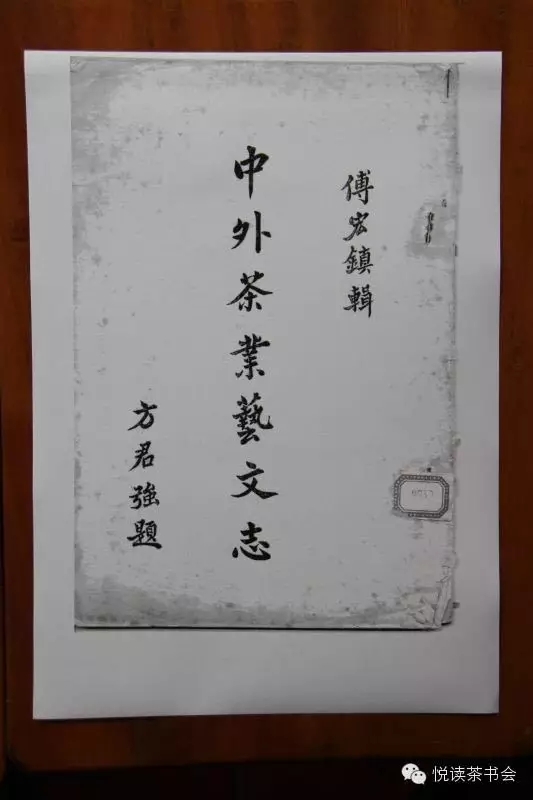 傅宏鎮輯
中外茶業藝文志
方君強題
悦读茶书会